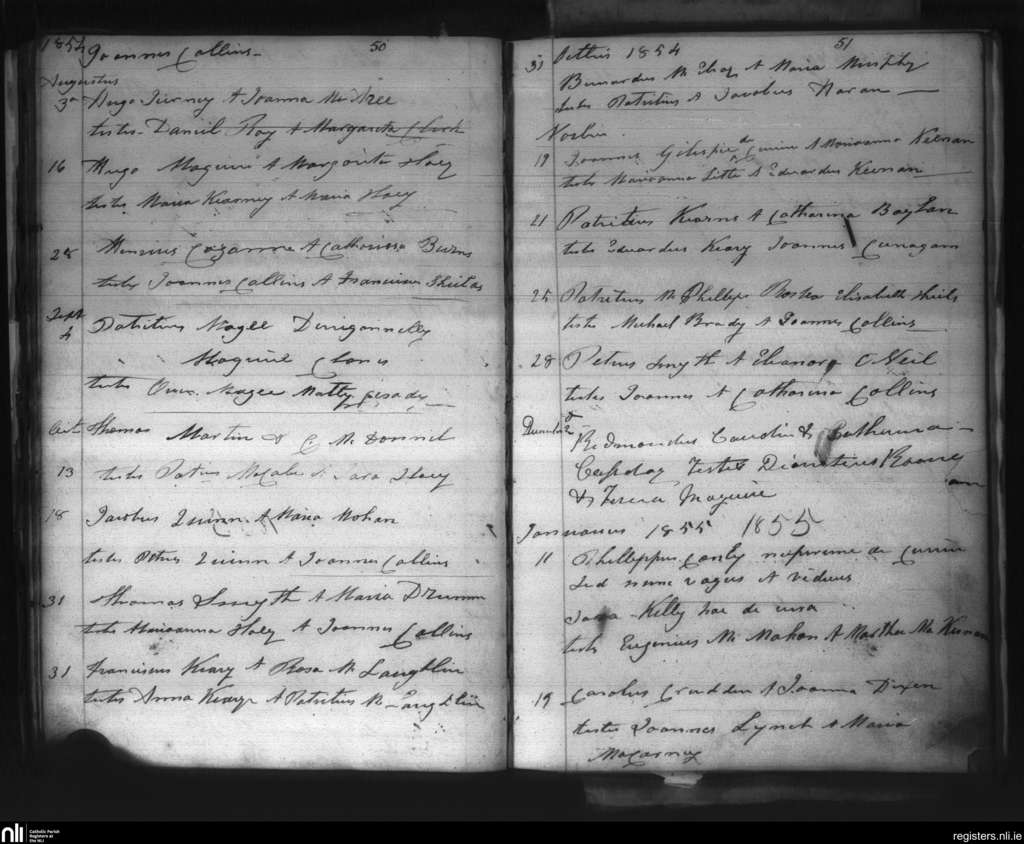 1854 Joannes Collins 50
Augustus
30 Hugo Tierney & Joanna Mc Atee
testes Daniel Hoy & Margareta Clerk
16 Hugo Maguire & Margarita Hoey
testes Maria Kearney & Maria Hoey
28 Cozanne & Catharina Burns
testes Joannes Collins & Franciscus Shielas
Sept
4 Patritius Magee
Maguire Clones
testes Owen Magee Matty
Oct Thomas Martin & C Mc Donnel
13 testes Patrius McCabe & Sara Hoey
18 Jacobus Quinn & Maria Mohan
testes Petrus Quinn & Joannes Collins
31 Thomas Smyth & Maria Drumm
testes Marioanna Hoey & Joannes Collins
31 Franciscus Keary & Rosa Mc Laughlin
testes Anna Keary & Patritius Mc Laughlin
51
31 1854
Bernardus Mc & Maria Murphy
testes Patritius & Jacobus Naran
Novbir
19 Joannes Gillespie de Currin & Marioanna Keenan
testes Marioanna Little & Eduardus Keenan
21 Patritius Kearns & Catharina Boylan
testes Eduardus Keary Joannes Cunagam
25 Patritius Mc Phillips Elisabeth Shiels
testes Michael Brady & Joannes Collins
28 Petrus Smyth & Eleanora O Neil
testes Joannes & Catharina Collins
Decembr 2d Redmondus Caudin & Catherina
testes Dionatius Roone
& Teresa Maguire
Januarius 1855 1855
11 Phillippus Conly nuperime de Currin
sed nunc vagus & viduus
Sara Kelly hac de
testes Eugenius Mc Mahon & Martha Mc Kernan
19 Carolus Crudden & Joanna Dixon
testes Joannes Lynch & Maria
Macarney
nli Catholic Parish
Registers at
the NLI
registers.nli.ie